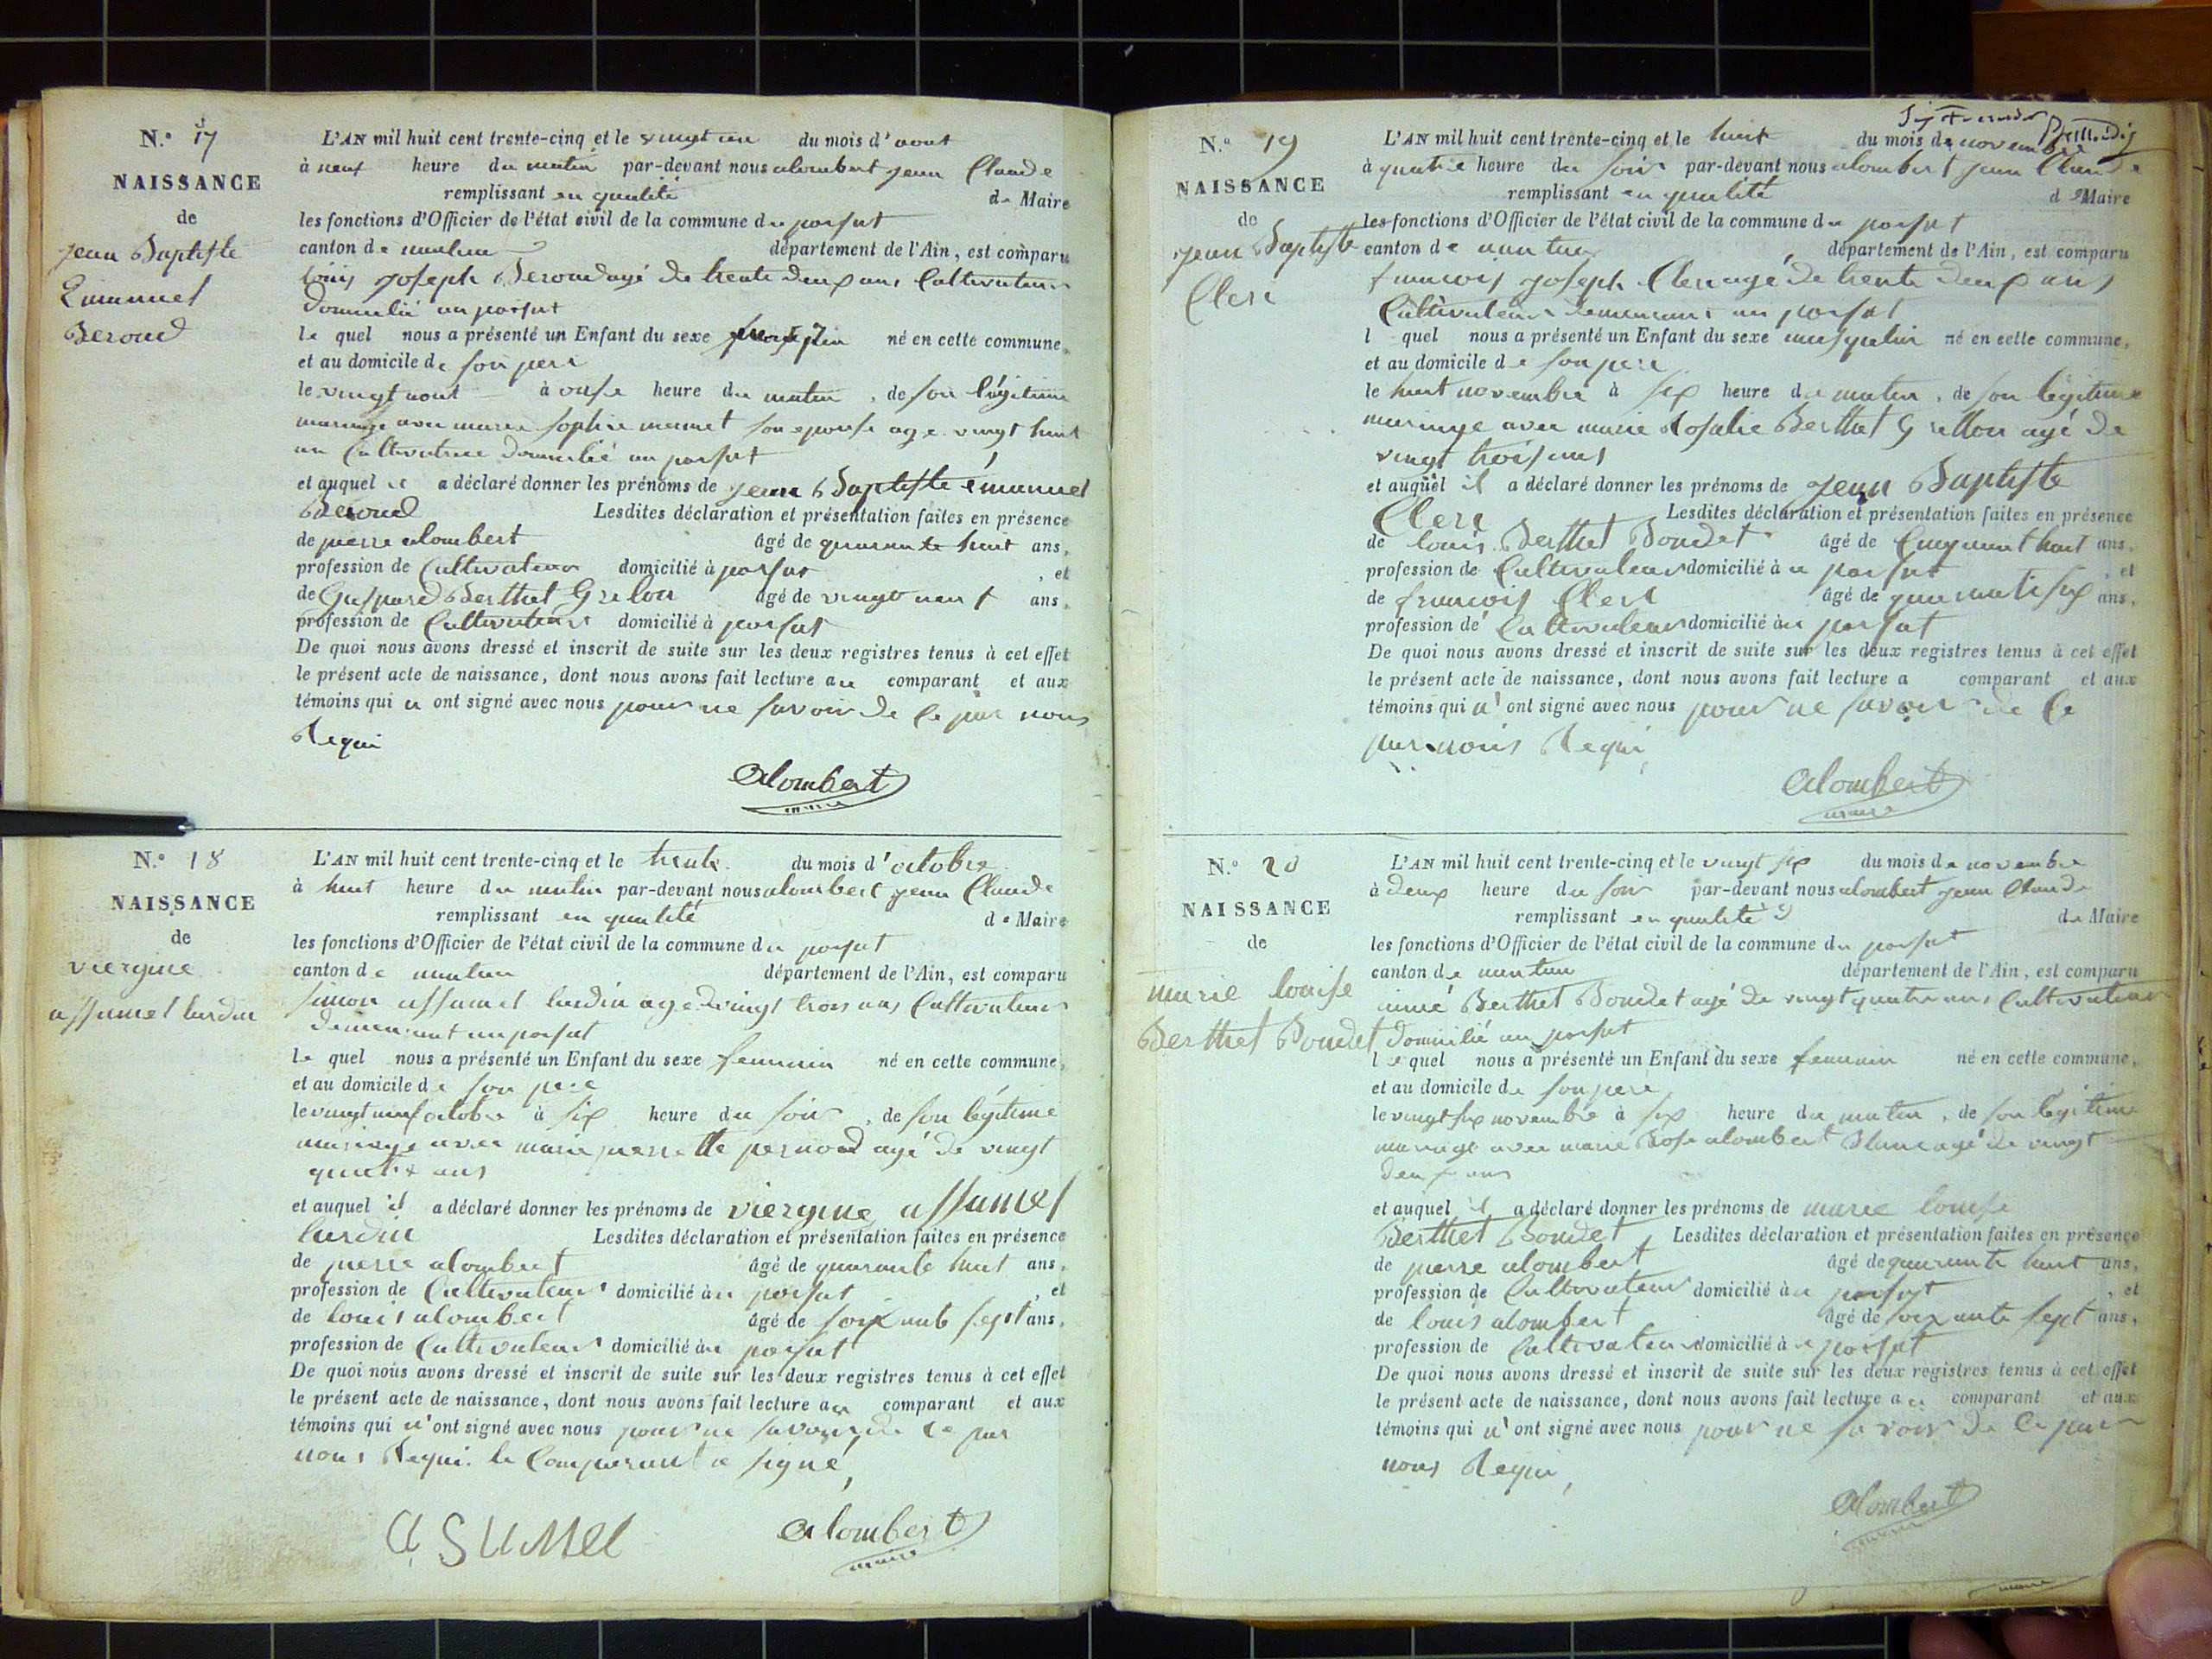 N.° 17
NAISSANCE
de
jean Baptiste
Emanuel
Beroud
L'AN mil huit cent trente-cinq et le vingt un du mois d'aout
à neuf heure du matin par-devant nous alombert jean Claude
remplissant en qualité de Maire
les fonctions d'Officier de l'état civil de la commune du
canton de département de l'Ain, est comparu
joseph Beroud agé de trente deux ans Cultivateur
domicilié au
le quel nous a présenté un Enfant du sexe né en cette commune,
et au domicile de son pere
le vingt aout à onse heure du matin, de son légitime
mariage avec marie sophie mermet son epouse age vingt huit
an Cultivatrice domicilié au
et auquel il a déclaré donner les prénoms de jean Baptiste émanuel
Beroud Lesdites déclaration et présentation faites en présence
de pierre alombert âgé de quarante huit ans,
profession de Cultivateur domicilié à , et
de Gaspard Berthet Grelon âgé de vingt neuf ans,
profession de Cultivateur domicilié à
De quoi nous avons dressé et inscrit de suite sur les deux registres tenus à cet effet
le présent acte de naissance, dont nous avons fait lecture au comparant et aux
témoins qui n ont signé avec nous pour ne savoir de ce par nous
Requi
alombert
maire
N.° 18
NAISSANCE
de
viergine
assumel lurdin
L'AN mil huit cent trente-cinq et le trente du mois d'octobre
à huit heure du matin par-devant nous alombert jean Claude
remplissant en qualité de Maire
les fonctions d'Officier de l'état civil de la commune du
canton de département de l'Ain, est comparu
simon assumel lurdin age vingt trois ans Cultivateur
demeurant au
le quel nous a présenté un Enfant du sexe feminin né en cette commune,
et au domicile de son pere
le vingt neuf octobre à six heure du soir, de son légitime
mariage avec marie pierrette pernod agé de vingt
quatre ans
et auquel il a déclaré donner les prénoms de viergine assumel
lurdin Lesdites déclaration et présentation faites en présence
de pierre alombert âgé de quarante huit ans,
profession de Cultivateur domicilié au , et
de louis alombert âgé de soixante sept ans,
profession de Cultivateur domicilié au
De quoi nous avons dressé et inscrit de suite sur les deux registres tenus à cet effet
le présent acte de naissance, dont nous avons fait lecture au comparant et aux
témoins qui n'ont signé avec nous pour ne savoir de ce par
nous Requi. le Comparant a signé,
ASUMEL alombert
maire
N.° 19
NAISSANCE
de
jean Baptiste
Clerc
L'AN mil huit cent trente-cinq et le huit du mois de novembre
à quatre heure du soir par-devant nous alombert jean Claude
remplissant en qualité de Maire
les fonctions d'Officier de l'état civil de la commune du
canton de nantua département de l'Ain, est comparu
francois joseph Clerc agé de trente deux ans
Cultivateur demeurant au
l quel nous a présenté un Enfant du sexe masqulin né en cette commune,
et au domicile de son pere
le huit novembre à six heure du matin, de son légitime
mariage avec marie Rosalie Berthet Grellon agé de
vingt trois ans
et auquel il a déclaré donner les prénoms de jean Baptiste
Clerc Lesdites déclaration et présentation faites en présence
de louis Berthet Bondet âgé de Cinquant huit ans,
profession de Cultivateur domicilié à u , et
de francois Clerc âgé de quarante six ans,
profession de Cultivateur domicilié au
De quoi nous avons dressé et inscrit de suite sur les deux registres tenus à cet effet
le présent acte de naissance, dont nous avons fait lecture a comparant et aux
témoins qui n'ont signé avec nous pour ne savoir de ce
par nous Requi,
alombert
maire
N.° 20
NAISSANCE
de
marie louise
Berthet Bondet
L'AN mil huit cent trente-cinq et le vingt six du mois de novembre
à deux heure du soir par-devant nous alombert jean Claude
remplissant en qualité de Maire
les fonctions d'Officier de l'état civil de la commune du
canton de nantua département de l'Ain, est comparu
aimé Berthet Bondet agé de vingt quatre ans Cultivateur
domicilié au
le quel nous a présenté un Enfant du sexe feminin né en cette commune,
et au domicile de son pere
le vingt six novembre à six heure du matin, de son légitime
mariage avec marie Rose alombert Blanc agé de vingt
deux ans
et auquel il a déclaré donner les prénoms de marie louise
Berthet Bondet Lesdites déclaration et présentation faites en présence
de pierre alombert âgé de quarante huit ans,
profession de Cultivateur domicilié au , et
de louis alombert âgé de soixante sept ans,
profession de Cultivateur domicilié à u
De quoi nous avons dressé et inscrit de suite sur les deux registres tenus à cet effet
le présent acte de naissance, dont nous avons fait lecture au comparant et aux
témoins qui n'ont signé avec nous pour ne savoir de ce par
nous Requi,
alombert
maire